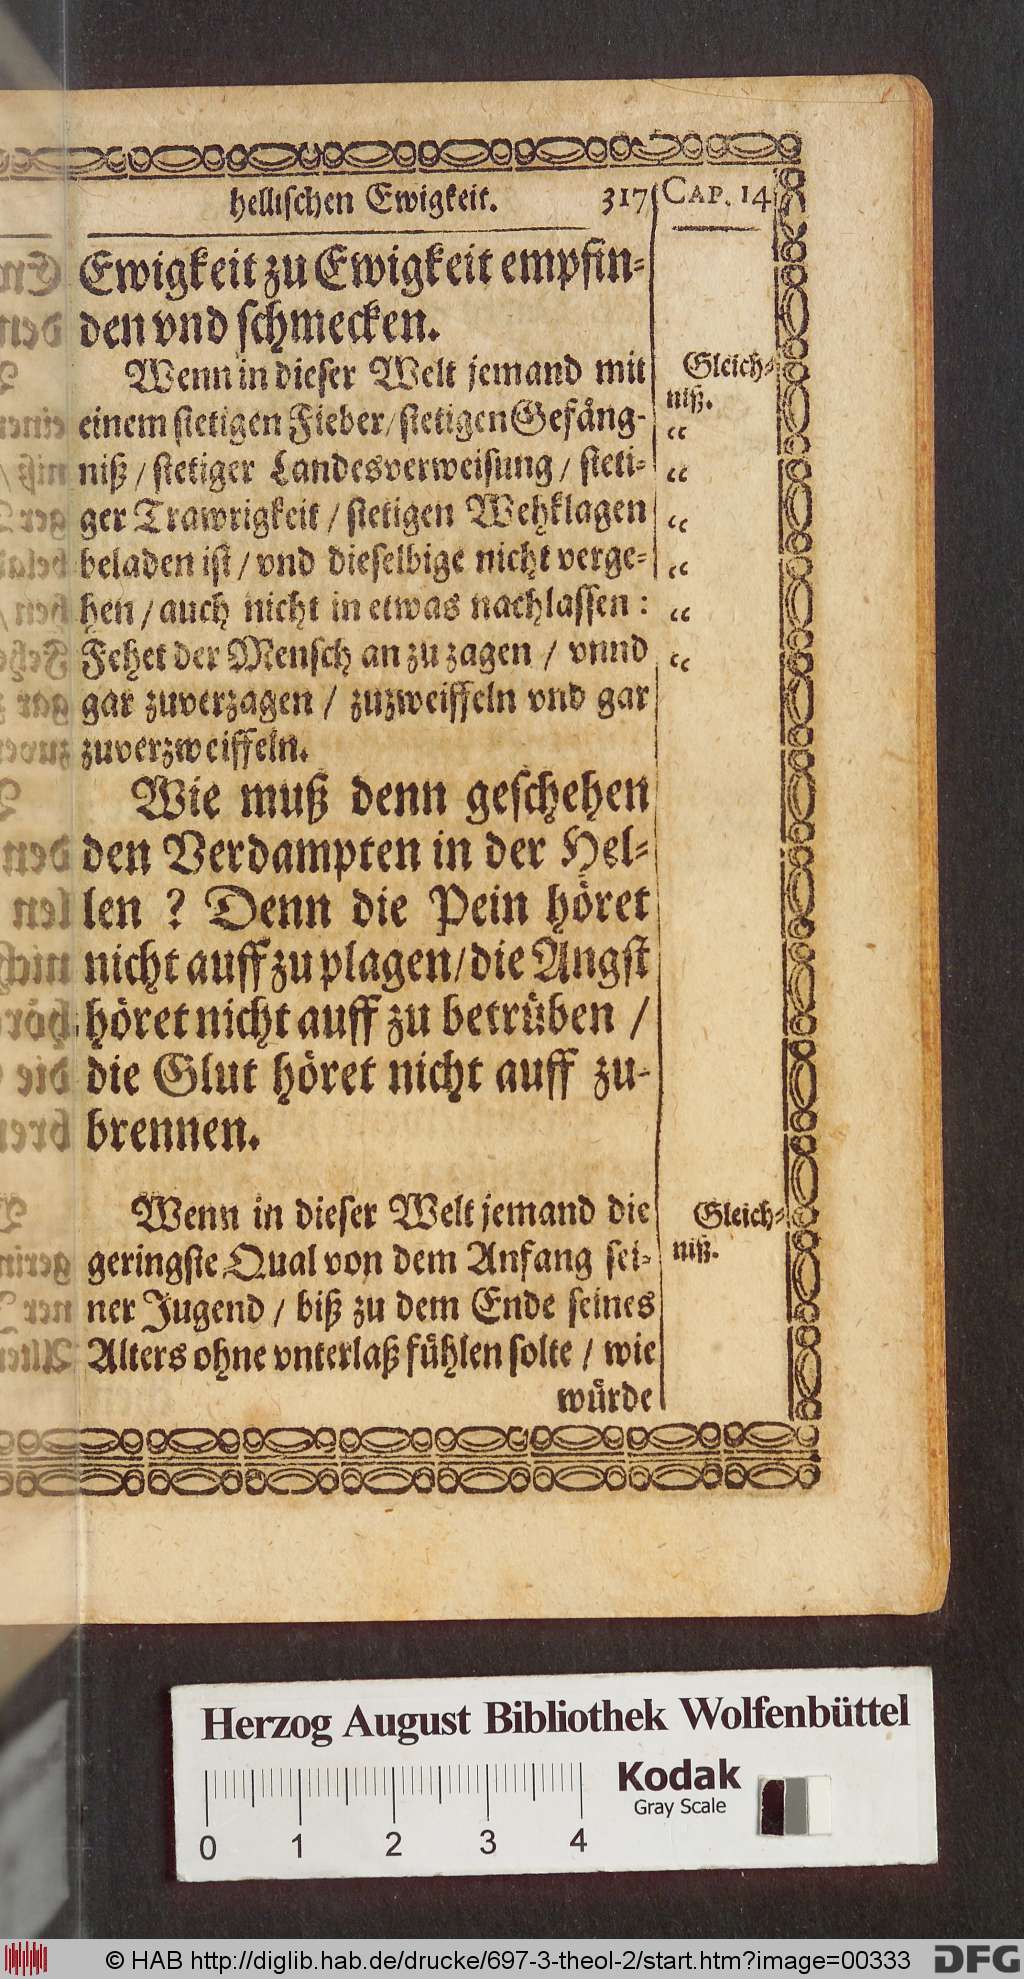 hellischen Ewigkeit. 317 CAP. 14
Ewigkeit zu Ewigkeit empfin⸗
den vnd schmecken.
Wenn in dieser Welt jemand mit
einem stetigen Fieber/ stetigen Gefäng-
niß / stetiger Landesverweisung / steti⸗
ger Trawrigkeit / stetigen Wehklagen
beladen ist / vnd dieselbige nicht verge⸗
hen / auch nicht in etwas nachlassen :
Fehet der Mensch an zu zagen / vnnd
gar zuverzagen / zuzweiffeln vnd gar
zuverzweiffeln.
Gleich⸗
niß.
“
“
“
“
“
“
Wie muß denn geschehen
den Verdampten in der Hel⸗
len ? Denn die Pein höret
nicht auff zu plagen/ die Angst
höret nicht auff zu betrüben /
die Glut höret nicht auff zu-
brennen.
Wenn in dieser Welt jemand die
geringste Qual von dem Anfang sei-
ner Jugend / biß zu dem Ende seines
Alters ohne vnterlaß fühlen solte / wie
würde
Gleich⸗
niß.
Herzog August Bibliothek Wolfenbüttel
Kodak
Gray Scale
0 1 2 3 4
© HAB http://diglib.hab.de/drucke/697-3-theol-2/start.htm?image=00333
DFG